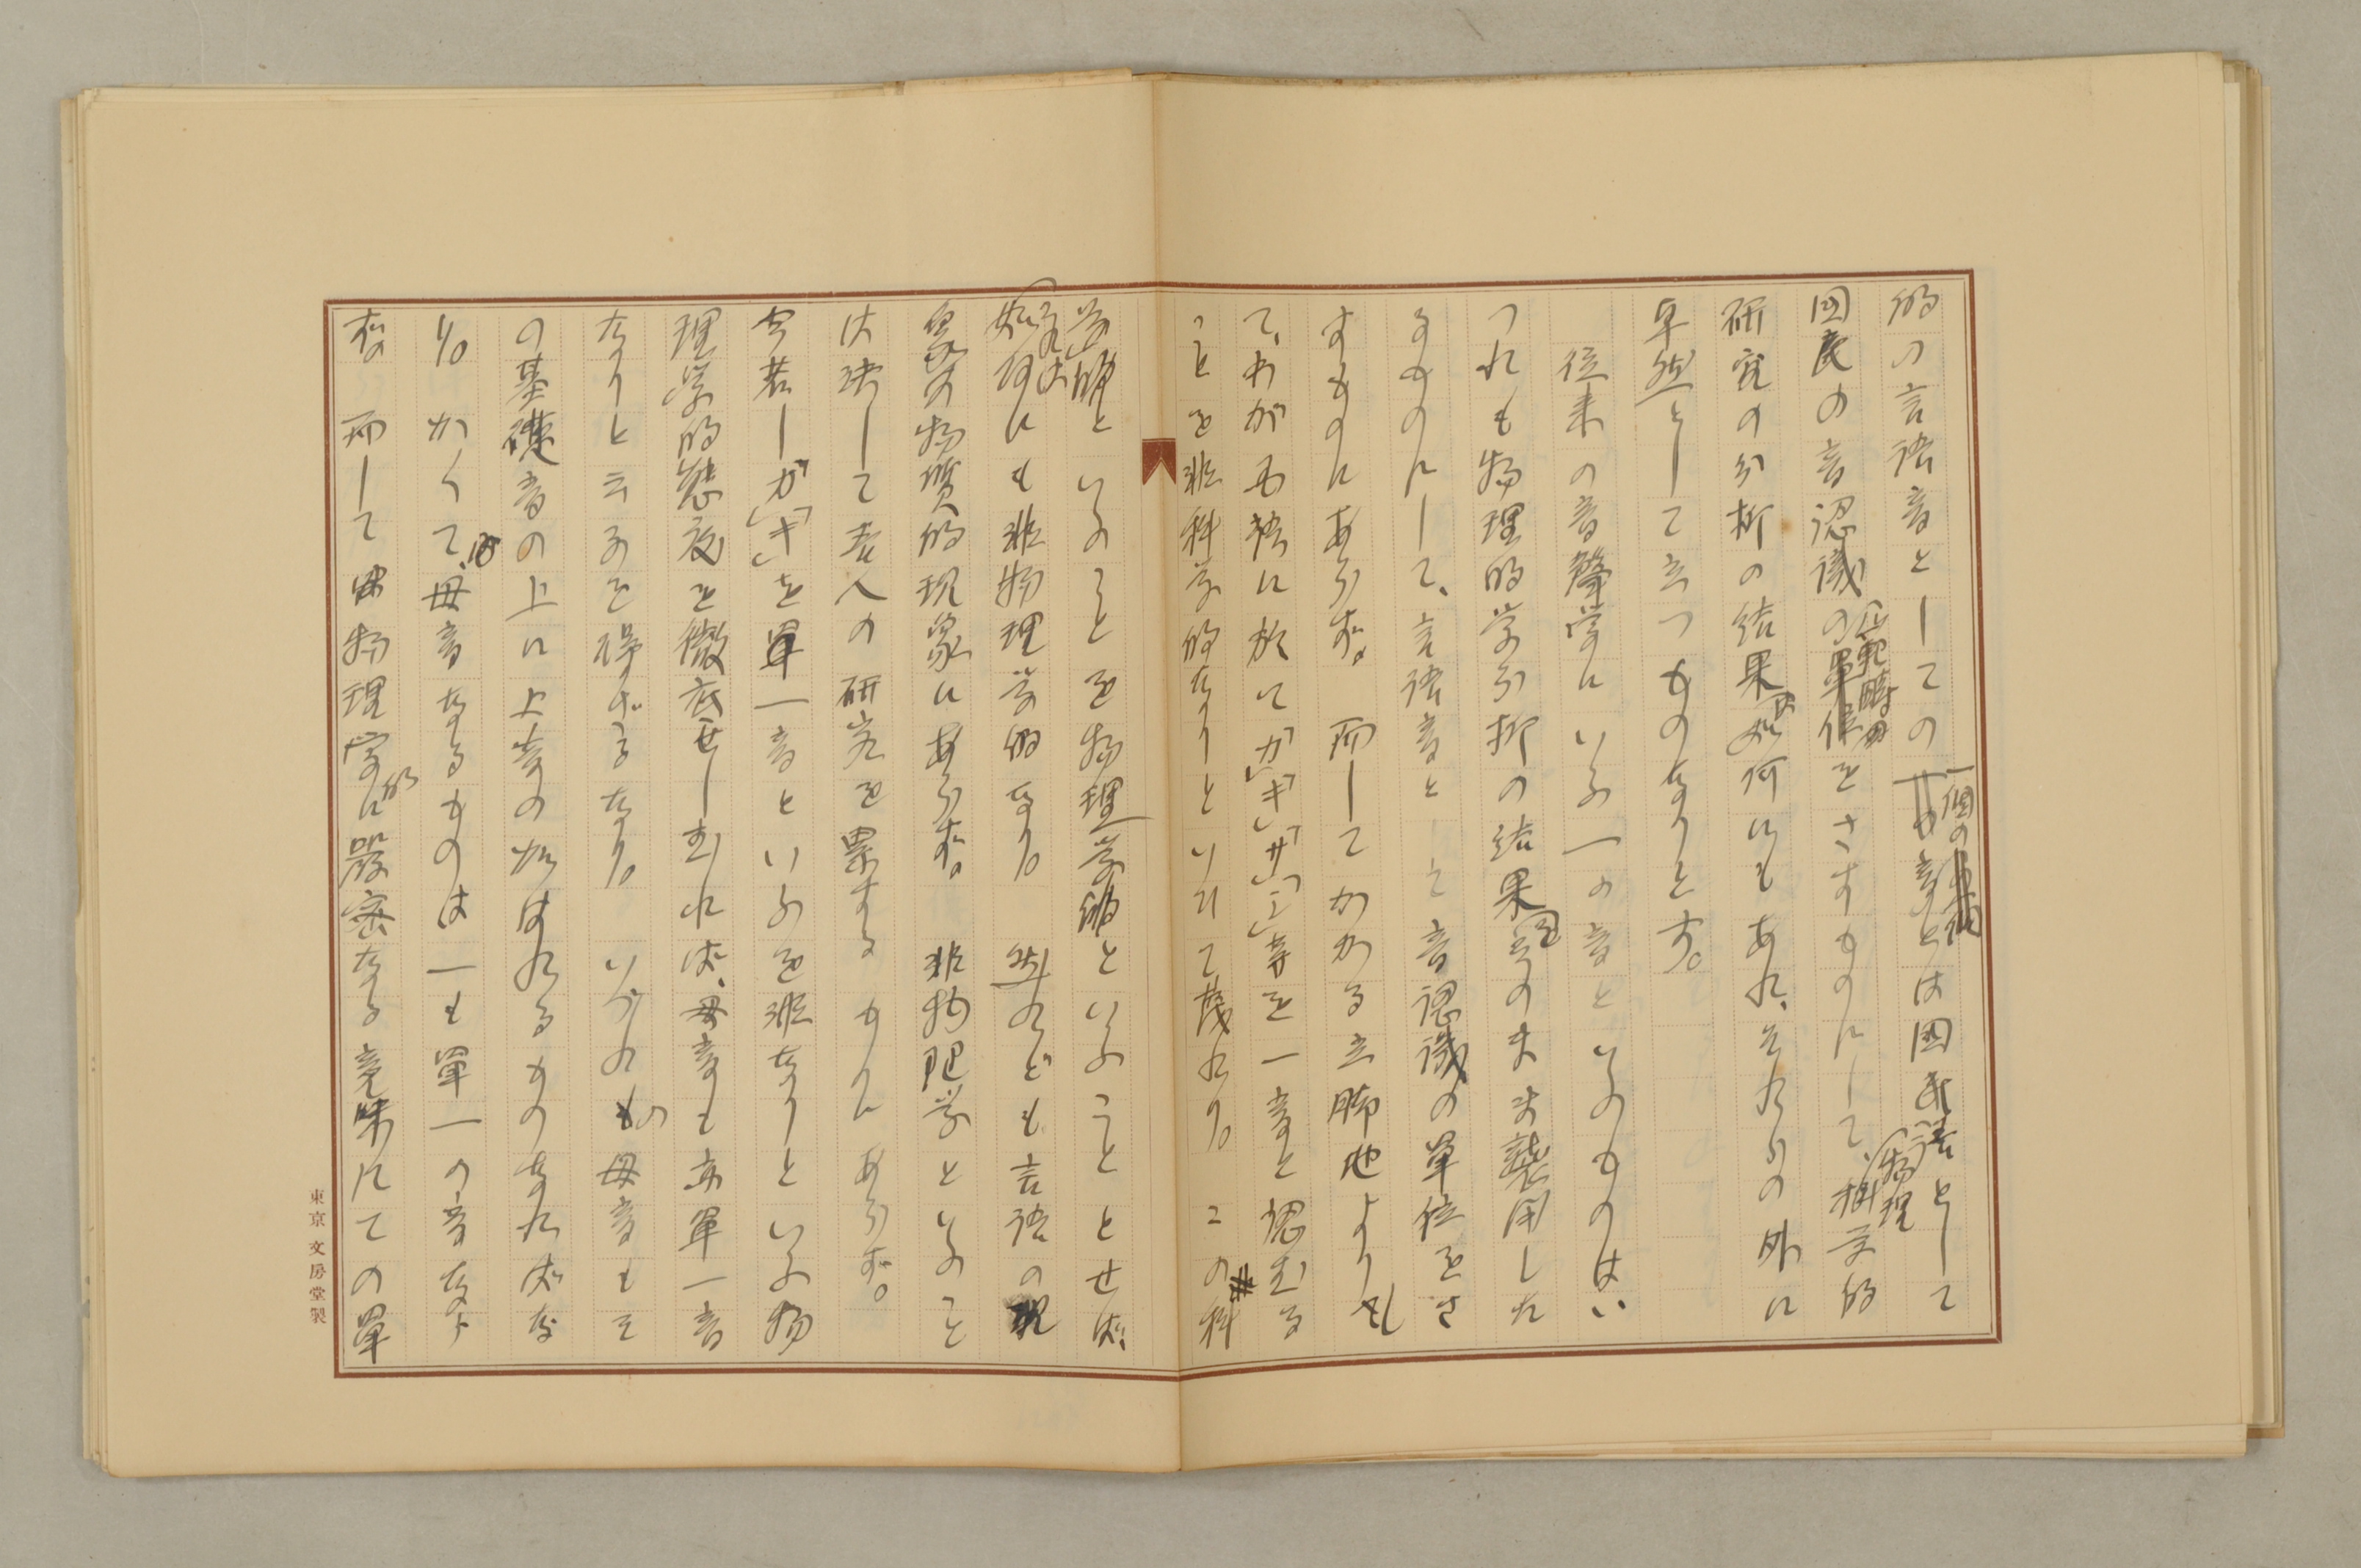 的の言語音としての一個の音とは国語として
国民の音認識の範疇の単位をさすものにして、物理科学的
研究の分析の結果は如何にもあれ、それらの外に
卓然として立つものなりとす。
従来の音聲学にいふ一の音といふものはい
つれも物理的学分析の結果をそのまま襲用した
るものにして、言語音と音認識の単位をさ
すものにあらず。而してかかる立脚地よりし
て、わが国語に於いて「ガ」「ギ」「ザ」「ジ」等を一音と認むる
ことを非科学的なりといひて蔑れり。この科
学的といふことを物理学的といふこととせば、
如何にも非物理学的なり。然れども言語の現
象は物質的現象にあらず。非物理学といふこと
は決して吾人の研究を累するものにあらず。
今若し「ガ」「ギ」を単一音といふを非なりといふ物
理学的態度を徹底せしむれば、母音も亦単一音
なりと云ふを得ざるなり。いづれの母音もそ
の基礎音の上に上音の加はれるものなればな
り。かくて、母音なるものは一も単一の音なら
ず。而して物理学的に嚴密なる意味にての単
東京 文房堂製